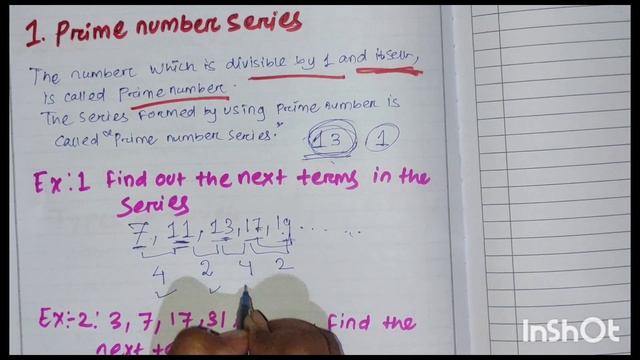 1. Prime number series
The number which is divisible by 1 and itself,
is called Prime number.
The series formed by using prime number is
called "Prime number series."
13 1
Ex:1 Find out the next terms in the
series
7, 11, 13, 17, 19 ......
4 2 4 2
Ex:-2: 3, 7, 17, 31, find the
next
InShOt